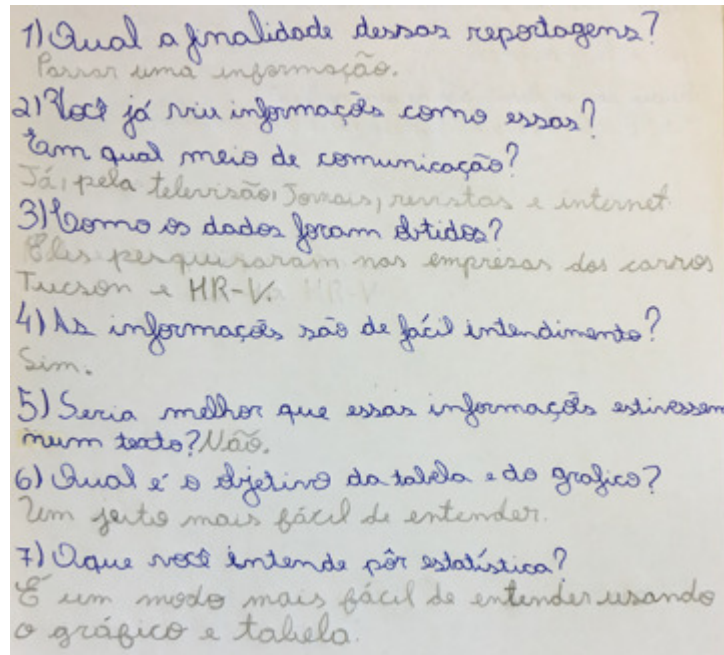 1) Qual a finalidade dessas reportagens?
Passar uma informação.
2) Você já viu informações como essas?
Em qual meio de comunicação?
Já, pela televisão, Jornais, revistas e internet
3) Como os dados foram obtidos?
Eles pesquisaram nas empresas dos carros
Tucson e HR-V.
4) As informações são de fácil intendimento?
Sim.
5) Seria melhor que essas informações estivessem
num texto? Não.
6) Qual é o objetivo da tabela e do grafico?
Um jeito mais fácil de entender.
7) Oque você intende pôr estatística?
É um modo mais fácil de entender usando
o gráfico e tabela.